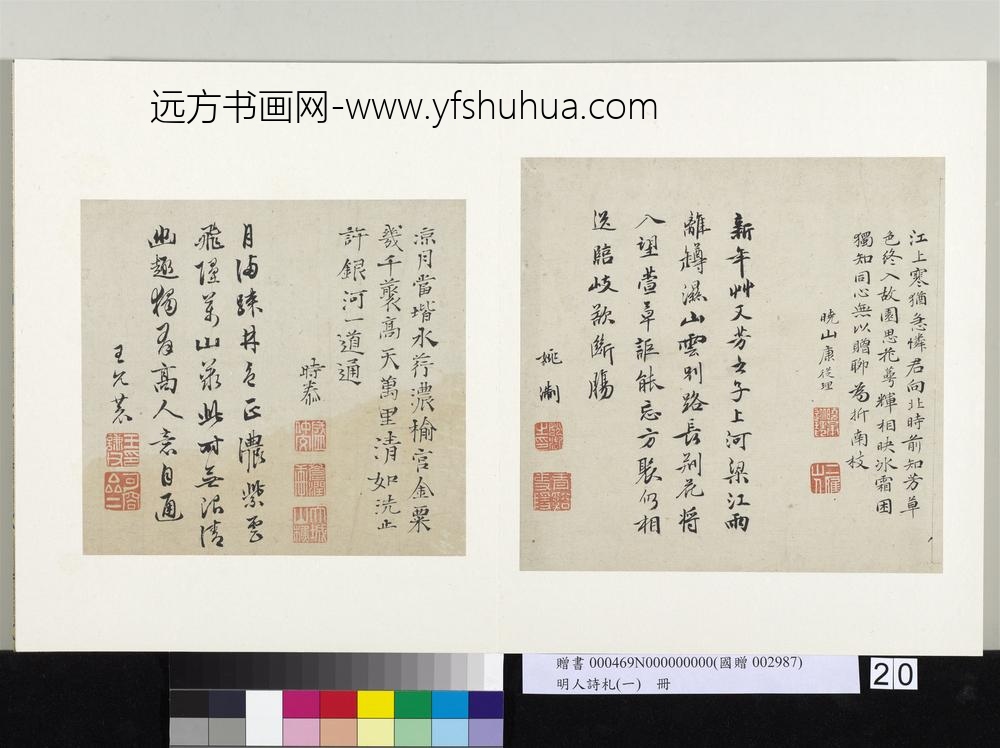 远方书画网-www.yfshuhua.com
江上寒猶急憐君向北時前知芳草
色終入故園思花萼輝相映冰霜困
獨知同心無以贈聊為折南枝
曉山康從理
新年艸又芳去子上河梁江雨
離樽濕山雲別路長荊花將
入望萱草詎能忘方襲仍相
送臨歧欲斷腸
姚淛
涼月當堦水荇濃榆宮金粟
幾千襲高天萬里清如洗止
許銀河一道通
時泰
月滿疎丹色正濃紫雲
飛墮萬山茶此時無限清
幽趣獨有高人意自通
王允
贈書 000469N000000000(國贈 002987)
明人詩札(一) 冊
20